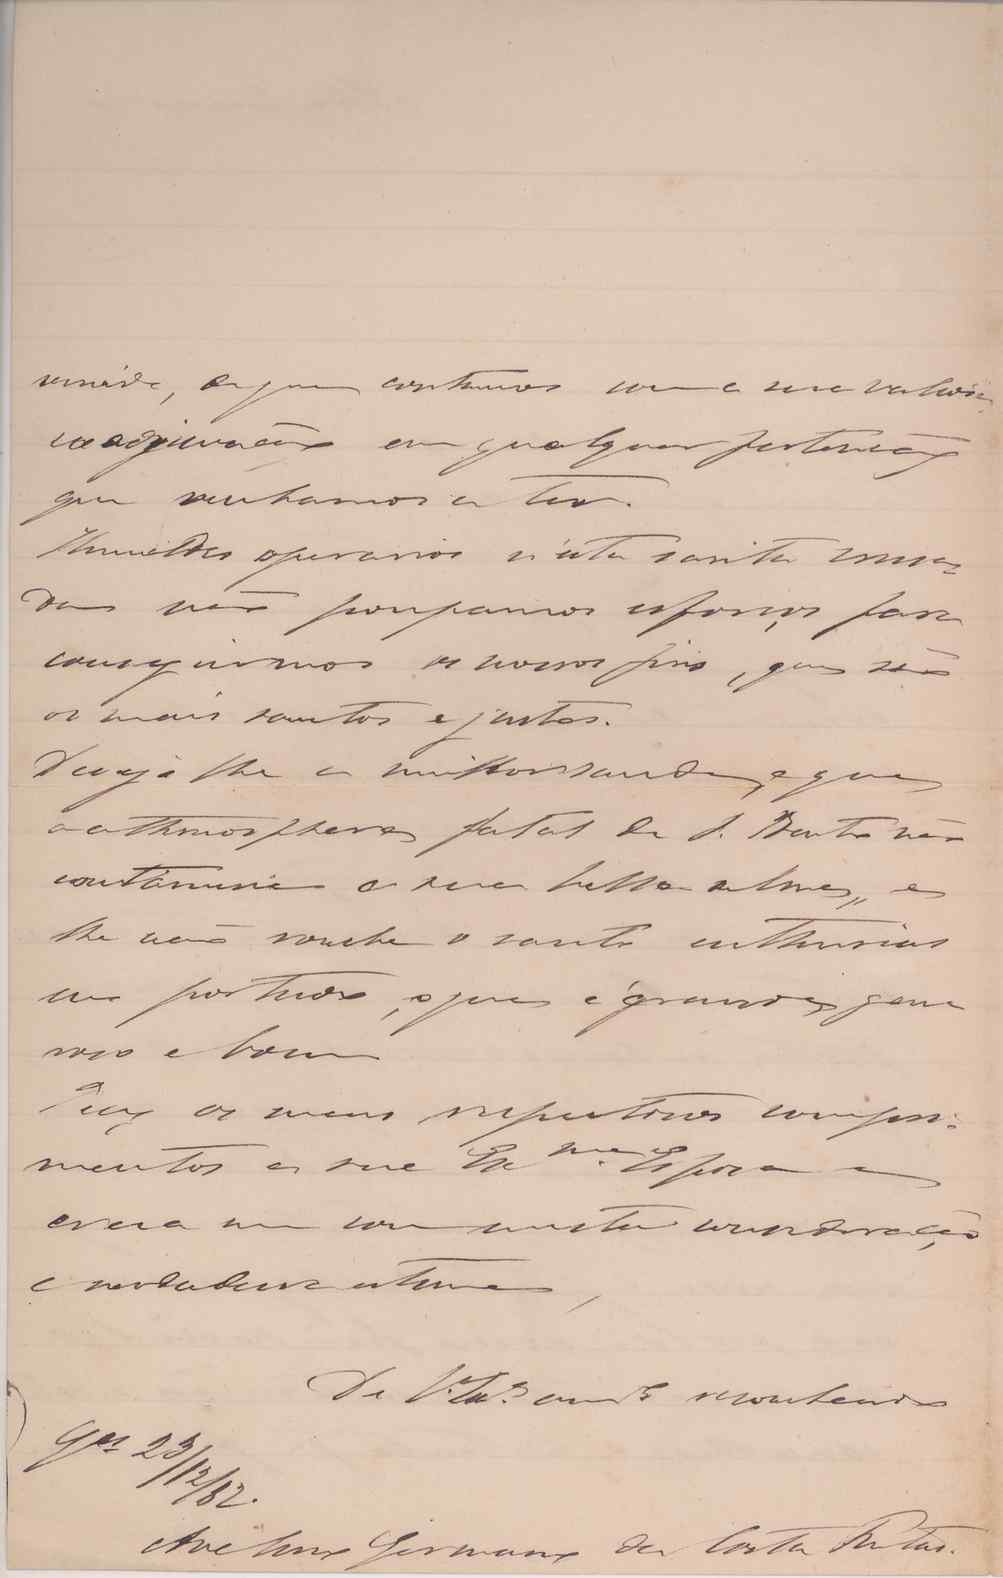 e que contamos com a sua valiosa
coadjuvação em qualquer pertenção
que venhamos a ter.
Humildes operarios n'esta santa cruza
da não poupamos esforços para
conseguirmos os nossos fins, que são
os mais santos e justos.
Desejo lhe a melhor saude, e que
a athmosphera fatal de S. Bento não
contamine a sua bella alma, e
lhe não roube o santo enthusias
mo portuense, que é grande, gene
roso e bom
Peço os meus respeitosos compri-
mentos a sua Exma. Esposa e
creia me com muita consideração
e verdadeira estima,
De V. Exa. amo. reconhecido
Ges 23/12/82.
Avelino Germano da Costa Freitas.